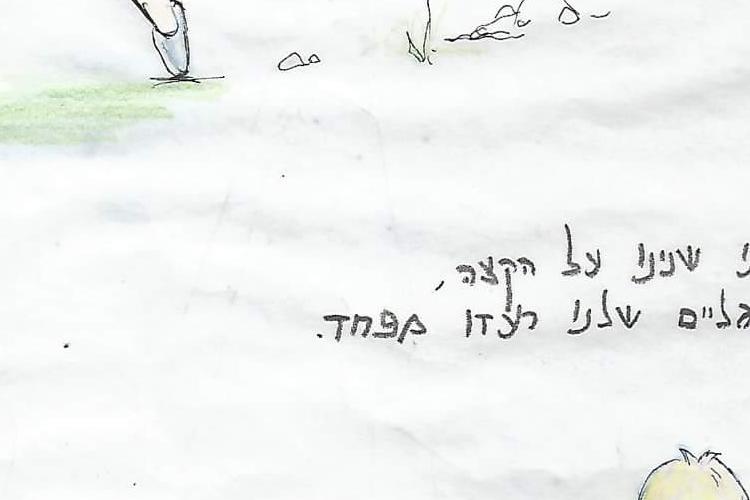 שנינו על הקצה,
גליים שלנו רעדו מפחד.